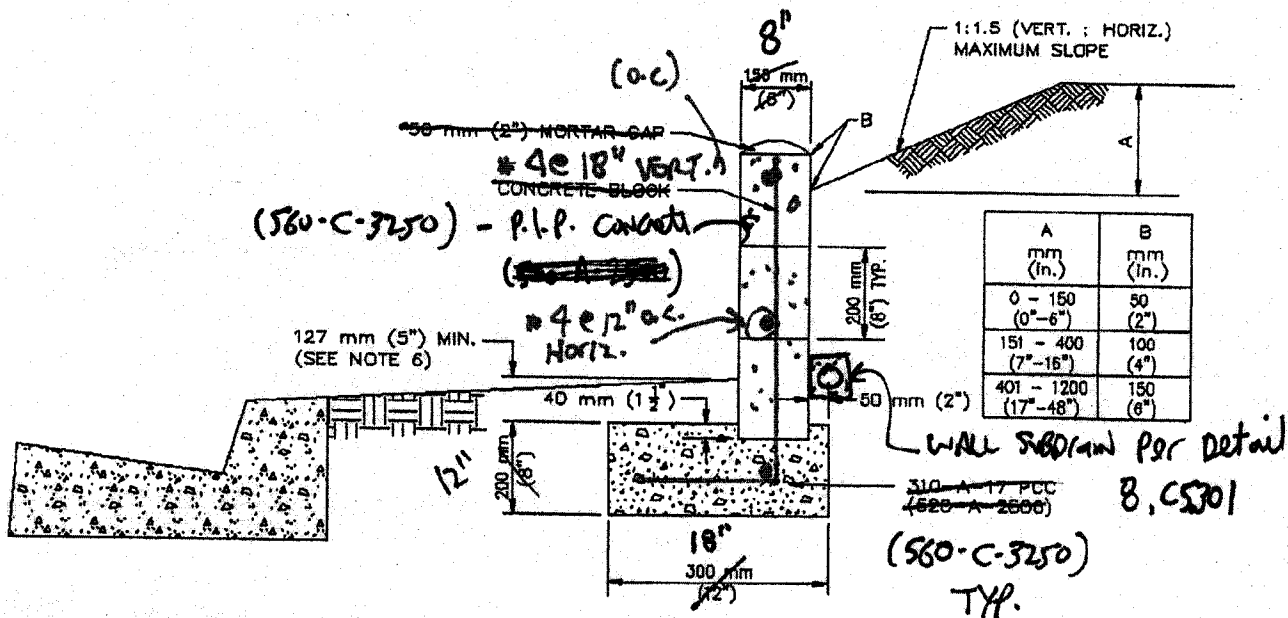 8"
150 mm
(6")
1:1.5 (VERT. : HORIZ.)
MAXIMUM SLOPE
(o.c)
*50 mm (2") MORTAR CAP
B
A
# 4@ 18" VERT.
CONCRETE BLOCK
(560-C-3250) - P.I.P. Concrete
# 4 @ 12" o.c.
Horiz.
200 mm
(8") TYP.
A B
mm mm
(in.) (in.)
0 - 150 50
(0"-6") (2")
151 - 400 100
(7"-16") (4")
401 - 1200 150
(17"-48") (6")
127 mm (5") MIN.
(SEE NOTE 6)
40 mm (1 1/2")
50 mm (2")
12"
200 mm
(8")
WALL SUBDrain Per Detail
8, C5301
310-A-17 PCC
(520-A-2500)
(560-C-3250)
TYP.
18"
300 mm
(12")